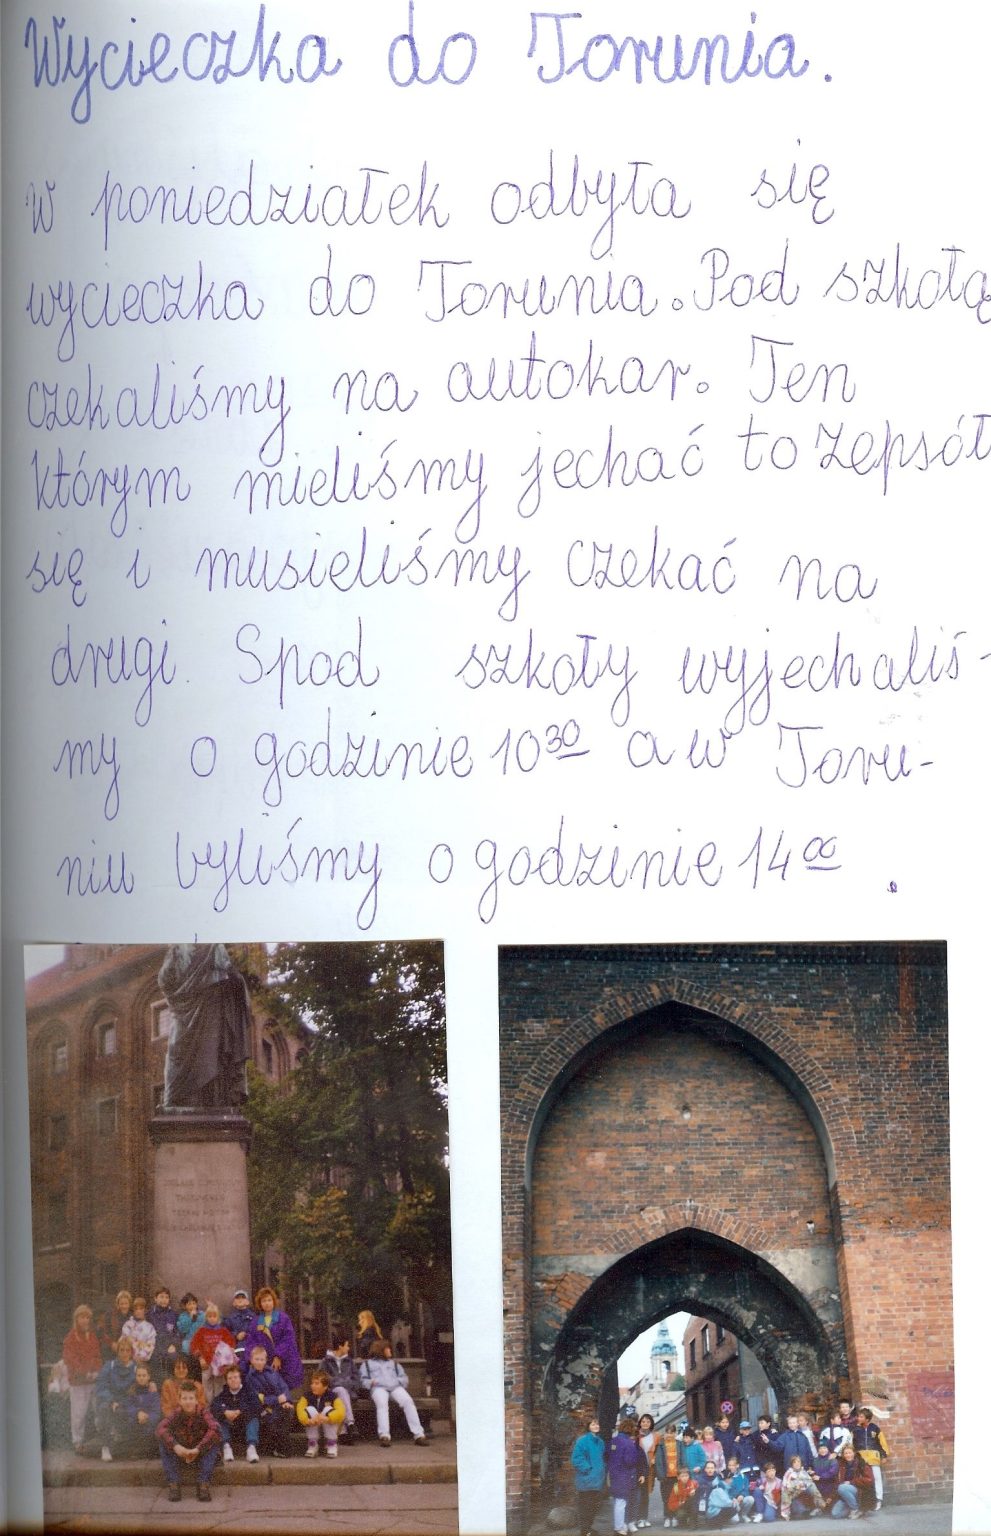 Wycieczka do Torunia.
W poniedziałek odbyła się
wycieczka do Torunia. Pod szkołą
czekaliśmy na autokar. Ten
którym mieliśmy jechać to zepsół
się i musieliśmy czekać na
drugi. Spod szkoły wyjechaliś-
my o godzinie 10 30 a w Toru-
niu byliśmy o godzinie 14 00.